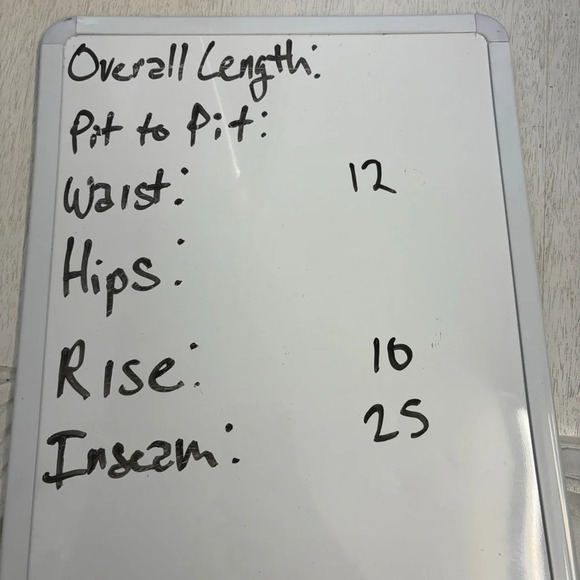 Overall Length:
Pit to Pit:
Waist: 12
Hips:
Rise: 10
Inseam: 25